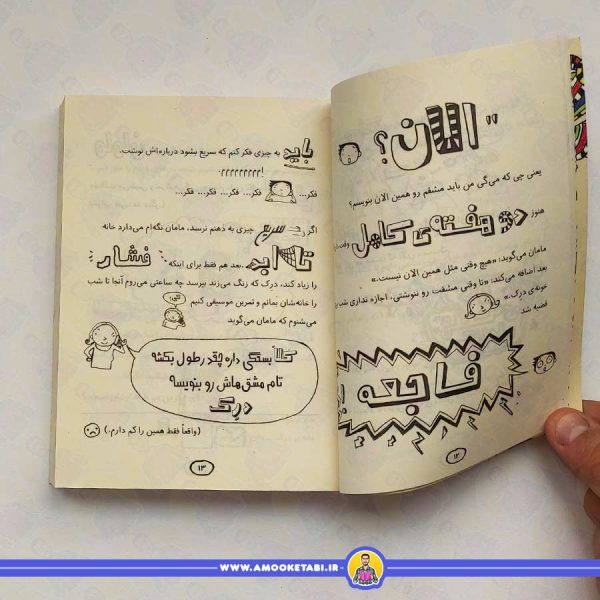 "الان؟
یعنی چی که می‌گی من باید مشقم رو همین الان بنویسم؟
هنوز دو هفته‌ی کامل وقت
مامان می‌گوید: «هیچ وقتی مثل همین الان نیست.»
بعد اضافه می‌کند: «تا وقتی مشقت رو ننوشتی، اجازه نداری
خونه‌ی درک.»
قضیه شد
فاجعه
۱۲
باید به چیزی فکر کنم که سریع بشود درباره‌اش نوشت.
اررررررررر!
فکر... فکر... فکر... فکر... فکر...
اگر سریع چیزی به ذهنم نرسد، مامان نگه‌ام می‌دارد خانه
تا ابد ..بعد هم فقط برای اینکه فشار
را زیاد کند، درک که زنگ می‌زند بپرسد چه ساعتی می‌روم آنجا تا شب
را خانه‌شان بمانم و تمرین موسیقی کنیم
می‌شنوم که مامان می‌گوید
کلاً بستگی داره چقدر طول بکشه
تام مشق‌هاش رو بنویسه
درک
(واقعاً فقط همین را کم دارم.)
۱۳
WWW.AMOOKETABI.IR